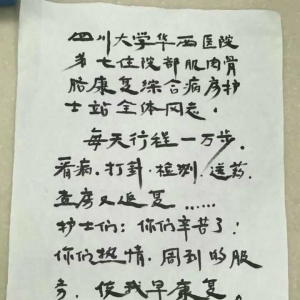 四川大学华西医院
第七住院部肌肉骨
骼康复综合病房护
士站全体同志:
每天行程一万步.
看病.打针.检测.送药.
查房又返复......
护士们:你们辛苦了!
你们热情.周到的服
务.使我早康复